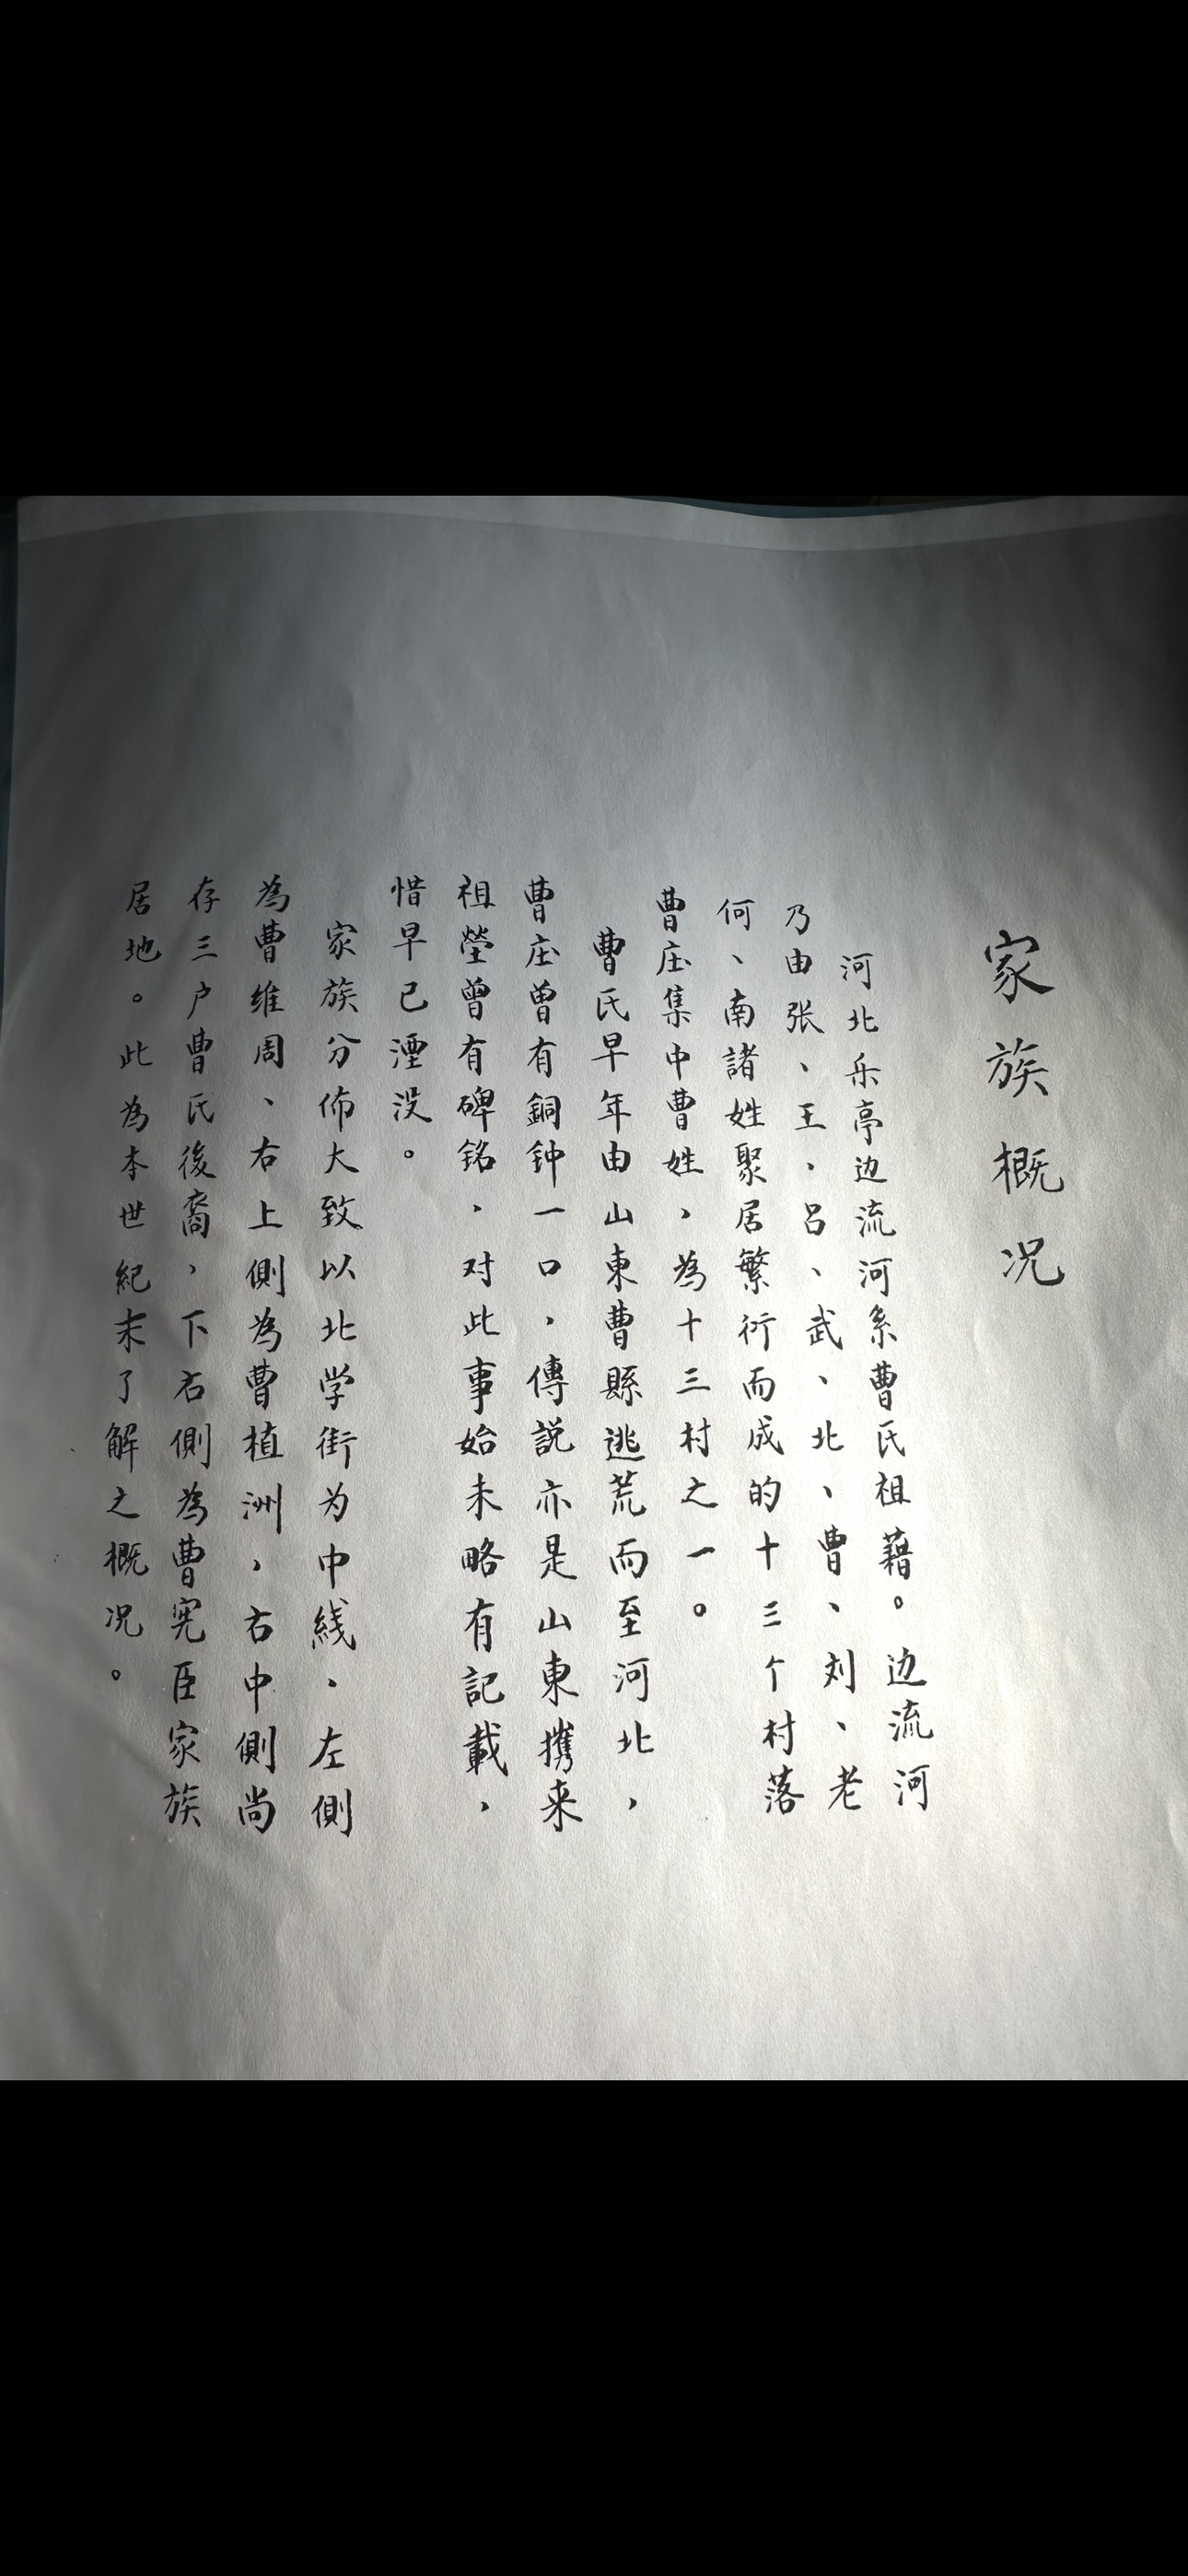 家族概况
河北乐亭边流河系曹氏祖藉。边流河
乃由张、王、吕、武、北、曹、刘、老
何、南諸姓聚居繁衍而成的十三个村落
曹庄集中曹姓,為十三村之一。
曹氏早年由山東曹縣逃荒而至河北,
曹庄曾有銅钟一口,傳説亦是山東攜来
祖塋曾有碑铭,对此事始末略有記載,
惜早已湮没。
家族分佈大致以北学街为中綫,左側
為曹维周、右上側為曹植洲,右中側尚
存三户曹氏後裔,下右側為曹宪臣家族
居地。此為本世紀末了解之概况。